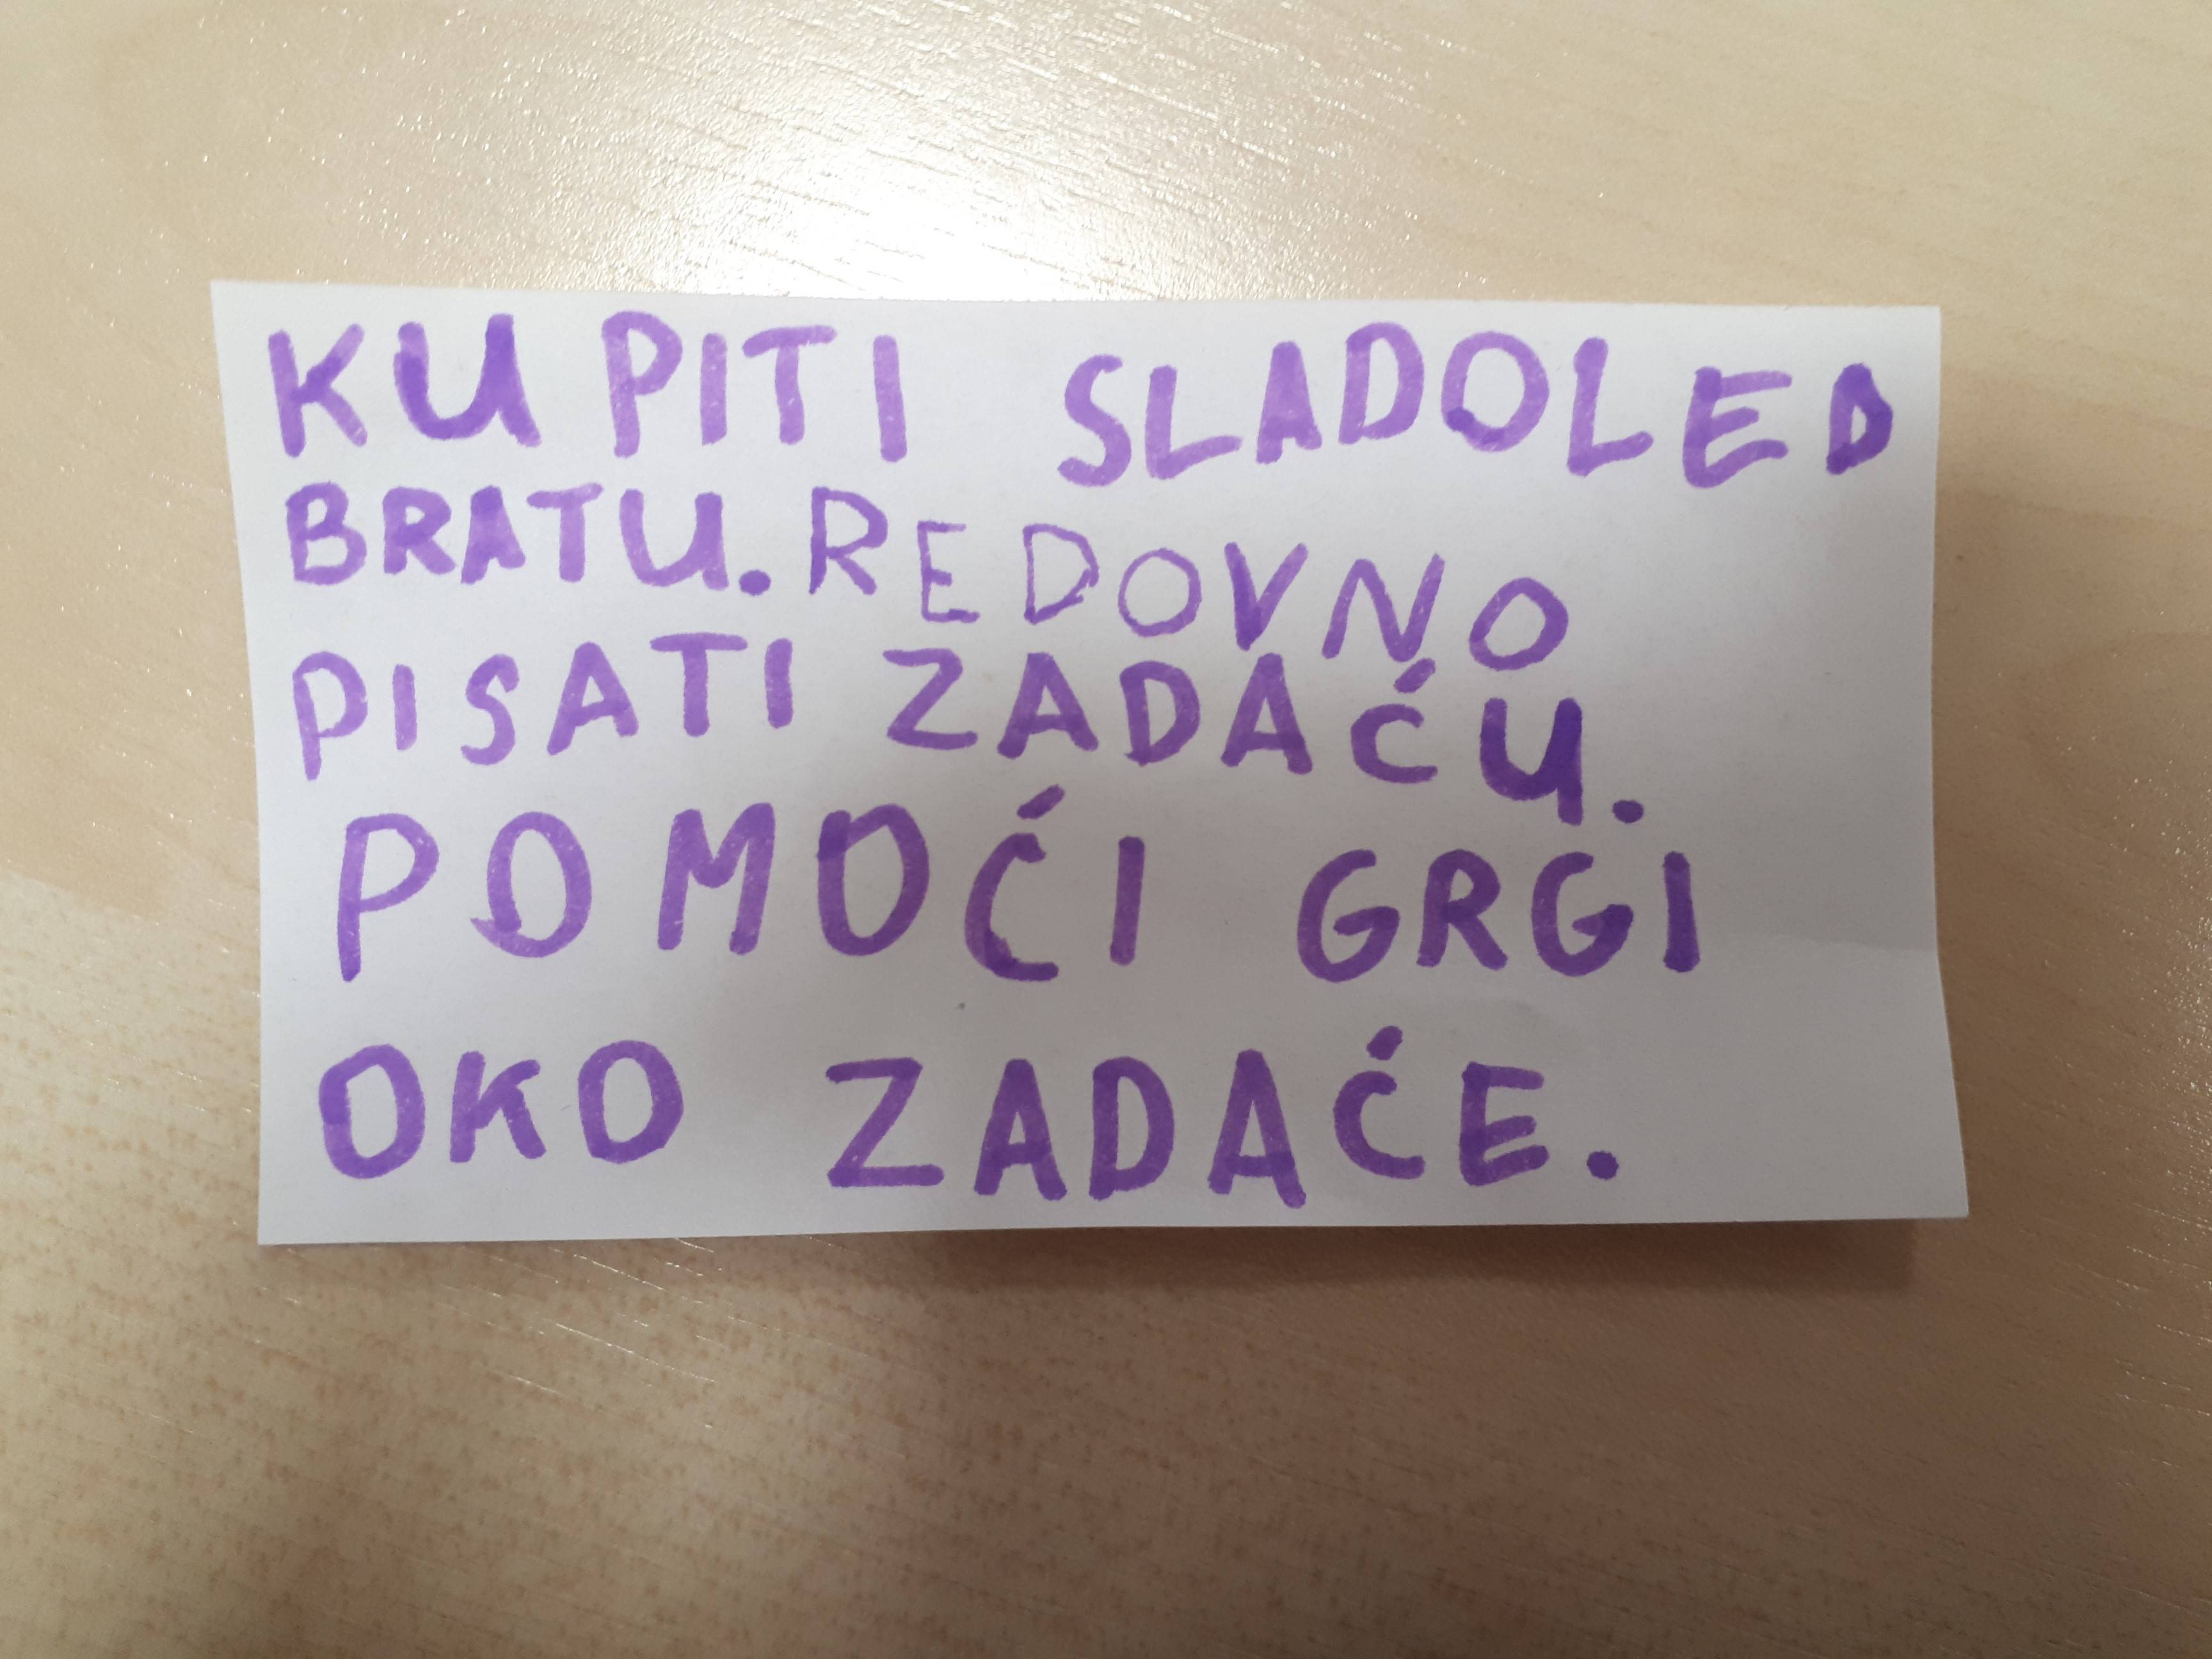 KUPITI SLADOLED
BRATU. REDOVNO
PISATI ZADAĆU.
POMOĆI GRGI
OKO ZADAĆE.